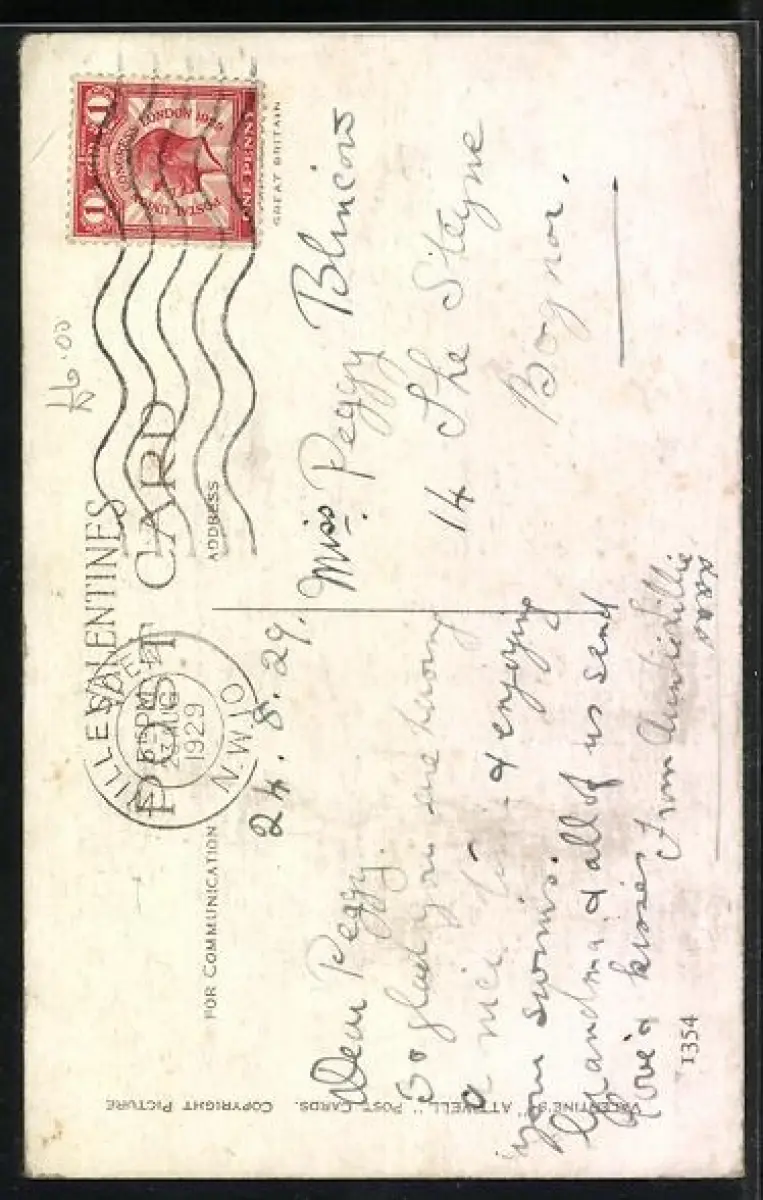 VALENTINES
POST CARD
FOR COMMUNICATION
ADDRESS
WILLESDEN
5 PM
AUG
1929
N.W.10
POSTAL UNION CONGRESS LONDON 1929
1 1
ONE PENNY
GREAT BRITAIN
£6.00
24.8.29.
Dear Peggy.
So glad you are having
a nice time & enjoying
your swims.
Grandma & all of us send
love & kisses
From Auntie Lillie
xxxx
Miss Peggy Blincow
14 The Steyne
Bognor.
VALENTINE'S "ATTWELL" POST CARDS. COPYRIGHT PICTURE
1354